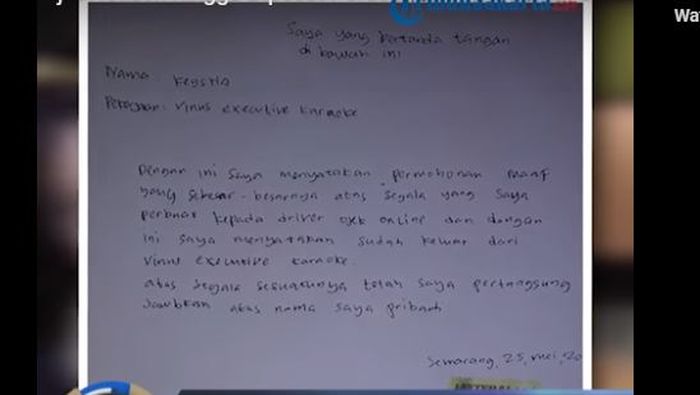 Saya yang bertanda tangan
di bawah ini
Nama : Keystia
Pekerjaan : Vinus executive karaoke
Dengan ini saya menyatakan permohonan maaf
yang sebesar-besarnya atas segala yang saya
perbuat kepada driver ojek online dan dengan
ini saya menyatakan sudah keluar dari
Vinus executive karaoke.
atas segala sesuatunya telah saya pertanggung
jawabkan atas nama saya pribadi
Semarang, 25, Mei, 20
Wa